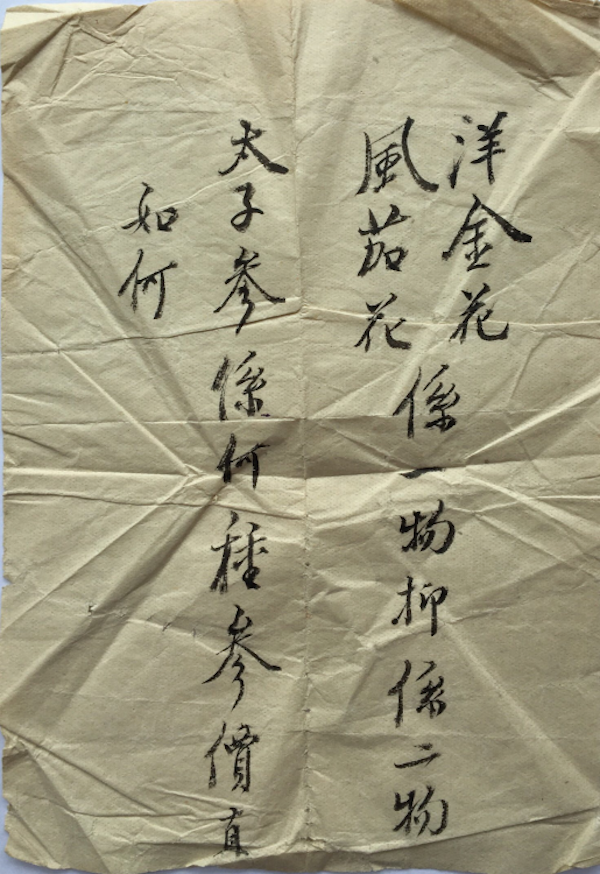 洋金花
風茄花
係一物抑係二物
太子參係何種參價直
如何